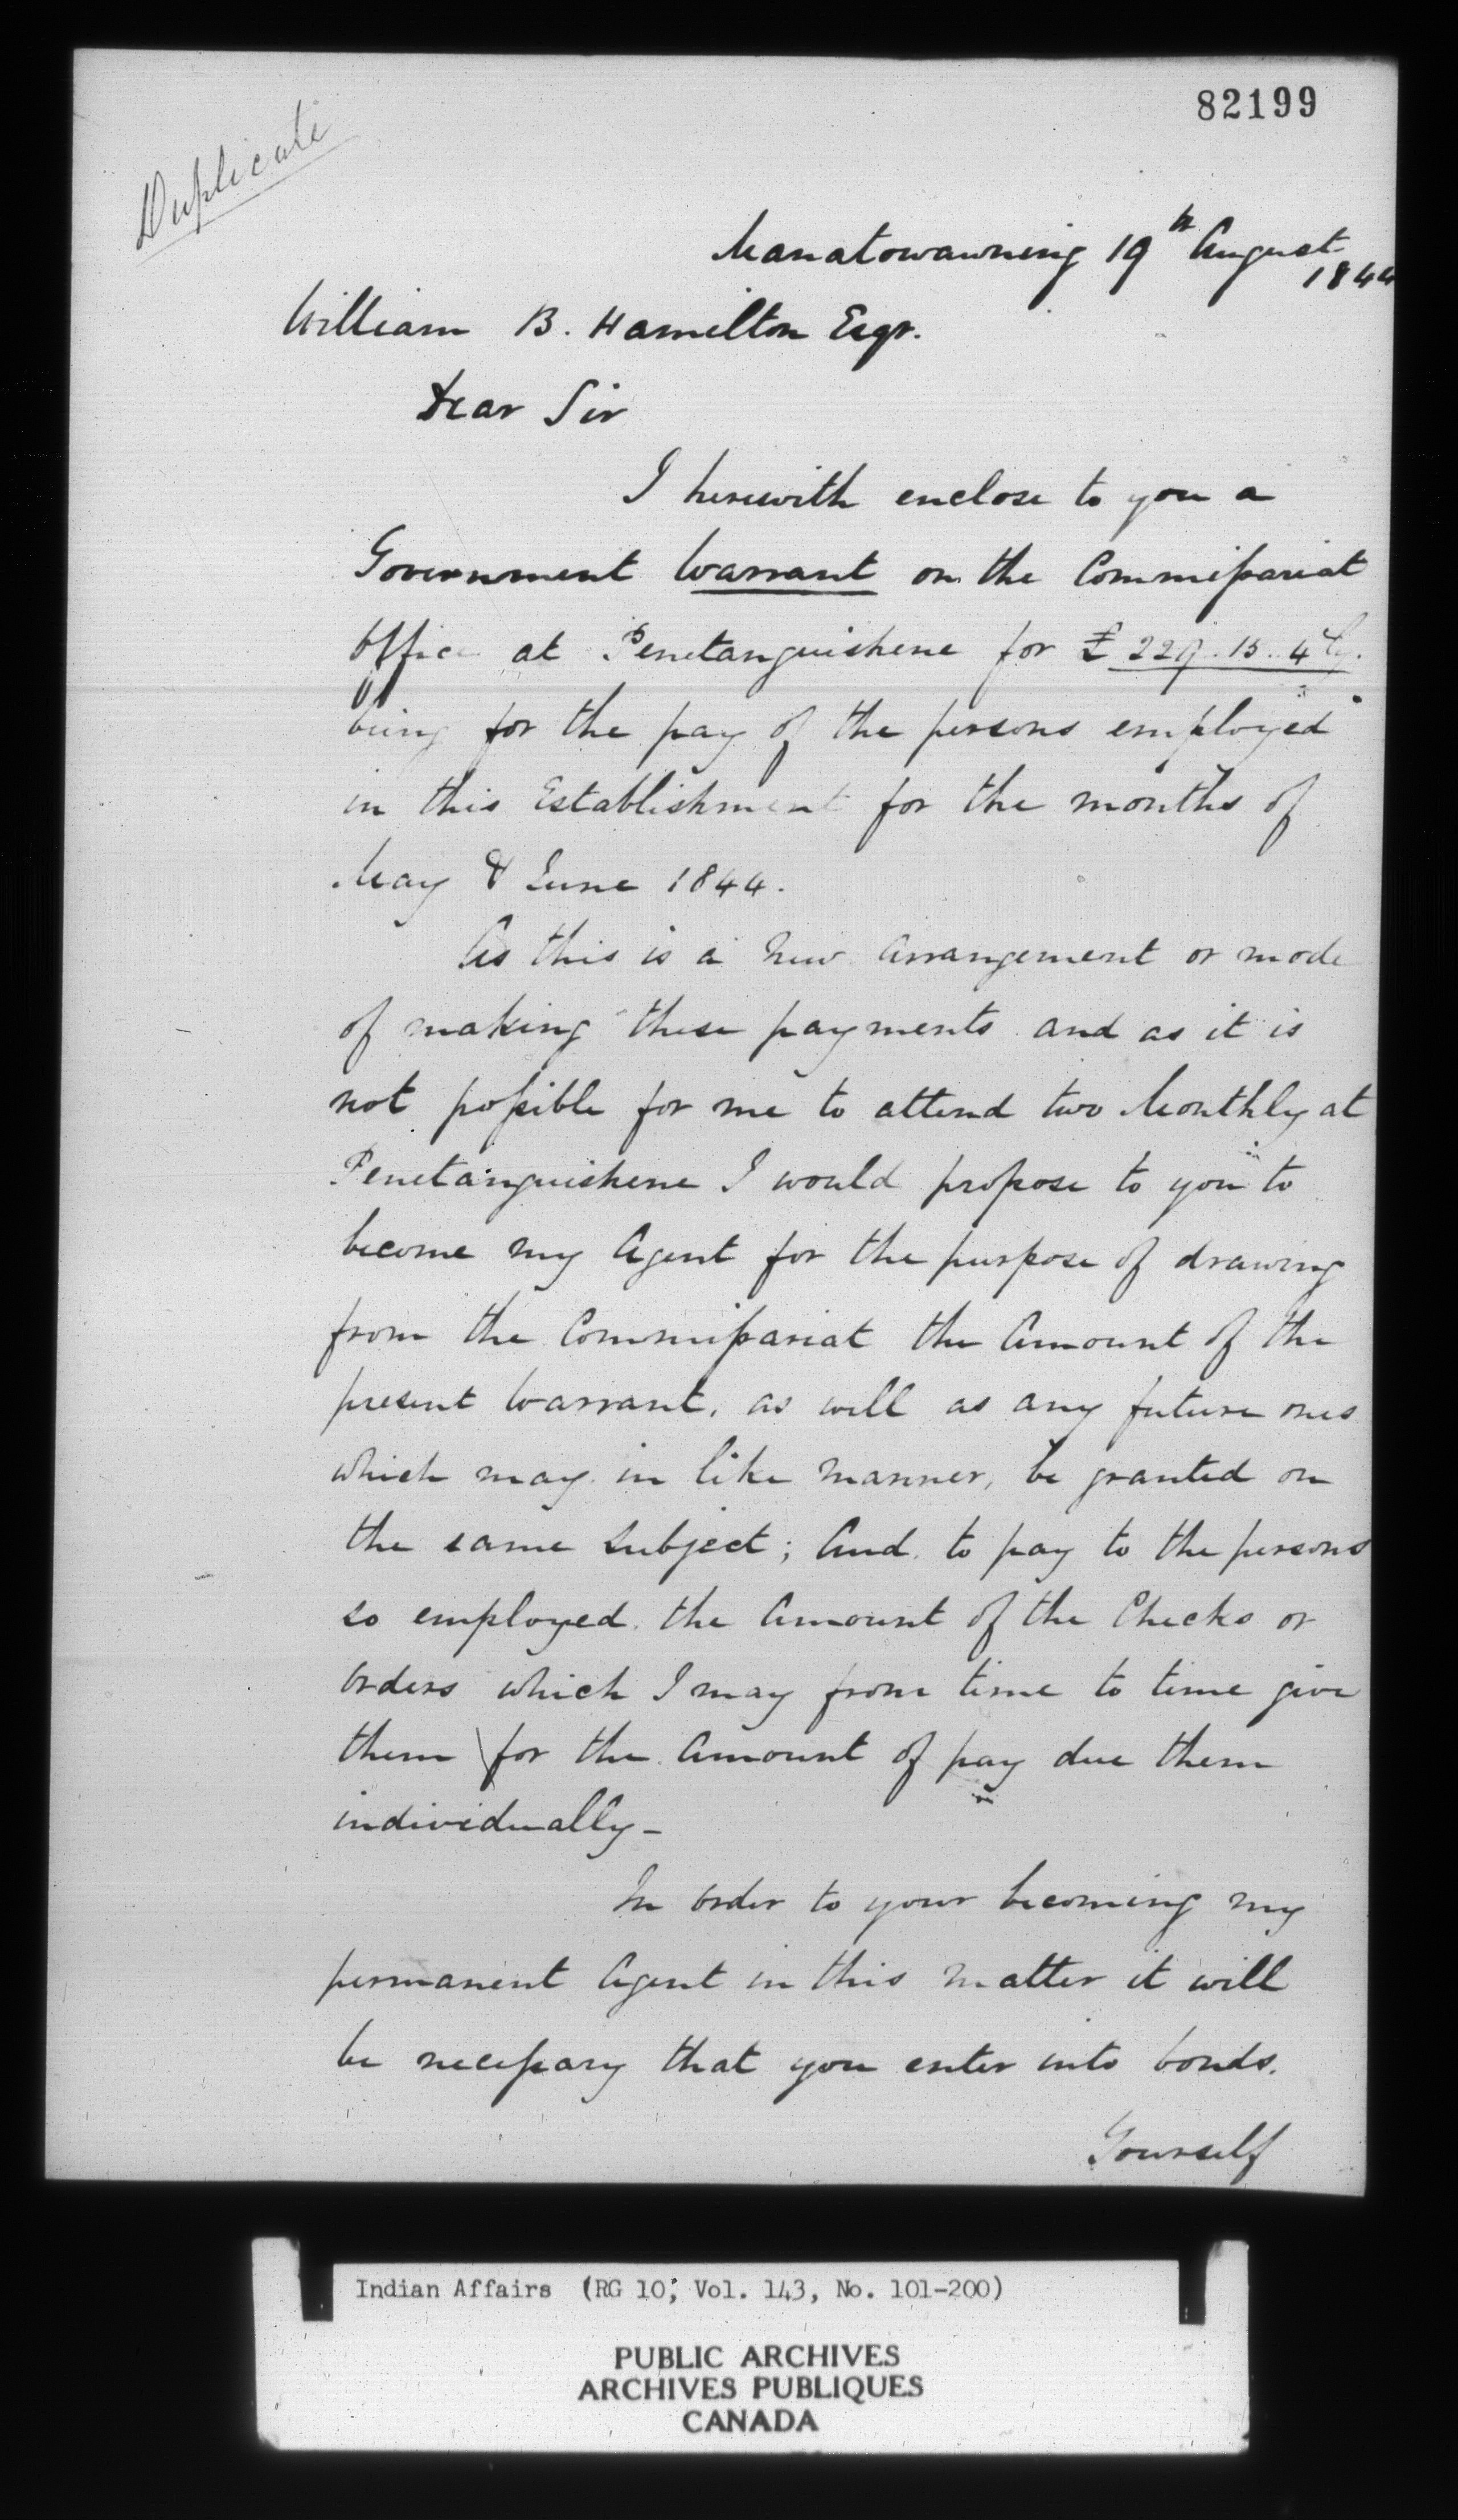 82199
Duplicate
Manatowawning 19th August
1844
William B. Hamilton Esqr.
Dear Sir
I herewith enclose to you a
Government Warrant on the Commissariat
Office at Penetanguishene for £229.15.4 Cy.
being for the pay of the persons employed
in this Establishment for the months of
May & June 1844.
As this is a new arrangement or mode
of making these payments and as it is
not possible for me to attend two Monthly at
Penetanguishene I would propose to you to
become my Agent for the purpose of drawing
from the Commissariat the Amount of the
present Warrant, as well as any future ones
which may in like manner, be granted on
the same subject; And to pay to the persons
so employed the Amount of the Checks or
Orders which I may from time to time give
them for the Amount of pay due them
individually-
In order to your becoming my
permanent Agent in this matter it will
be necessary that you enter into bonds.
Yourself
Indian Affairs (RG 10, Vol. 143, No. 101-200)
PUBLIC ARCHIVES
ARCHIVES PUBLIQUES
CANADA